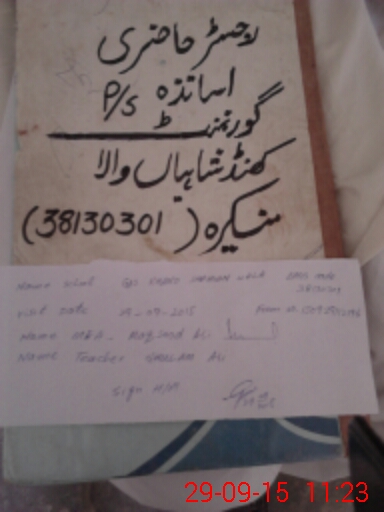 رجسٹر حاضری
اساتذہ P/S
گورنمنٹ
کھنڈ شاہاں والا
منکیرہ (38130301)
Name School GPS KHAND SHAHAN WALA EMIS code
38130301
Visit Date 29-09-2015
Name MEA - Maqsood Ali
Name Teacher GHULAM Ali
Sign H/M
29-09-15 11:23